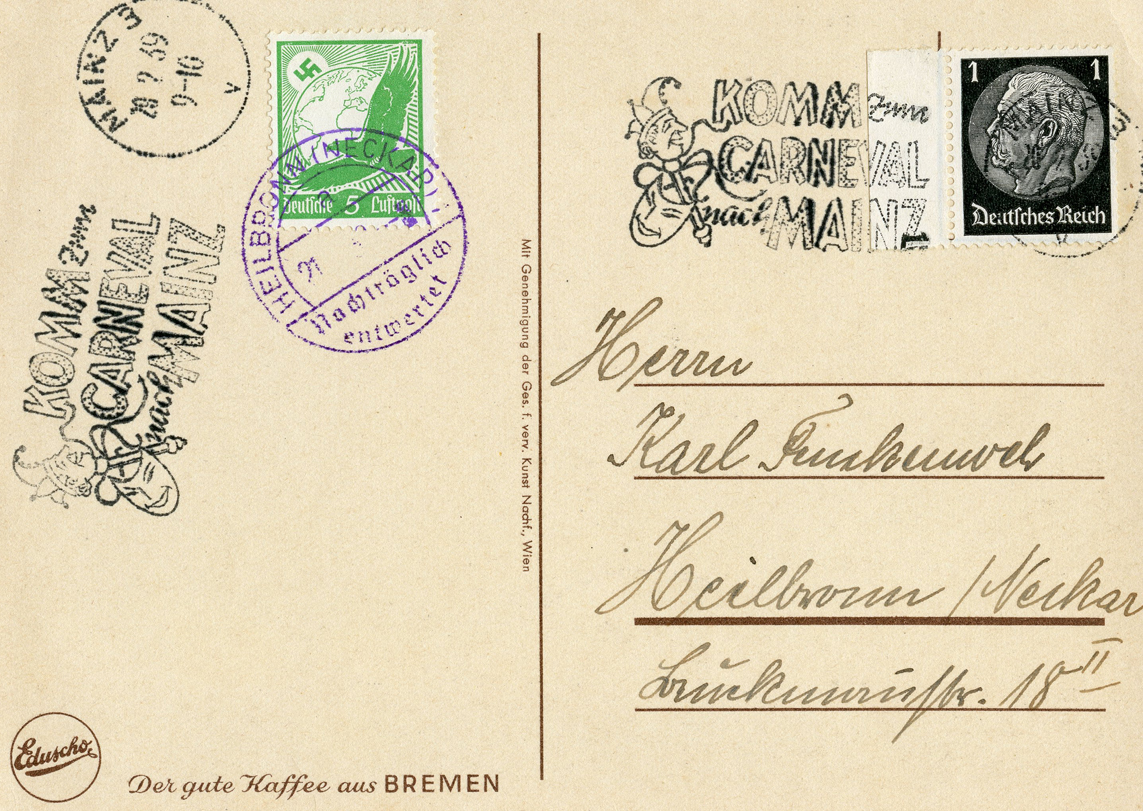 MAINZ 3
9-10
v
Deutsche 5 Luftpost
HEILBRONN (NECKAR)
Nachträglich
entwertet
KOMM zum
CARNEVAL
nach MAINZ
Mit Genehmigung der Ges. f. verv. Kunst Nachf., Wien
Eduscho
Der gute Kaffee aus BREMEN
KOMM zum
CARNEVAL
nach MAINZ
1 1
Deutsches Reich
MAINZ
Herrn
Karl
Heilbronn /Neckar
Bruckmannstr. 18 II